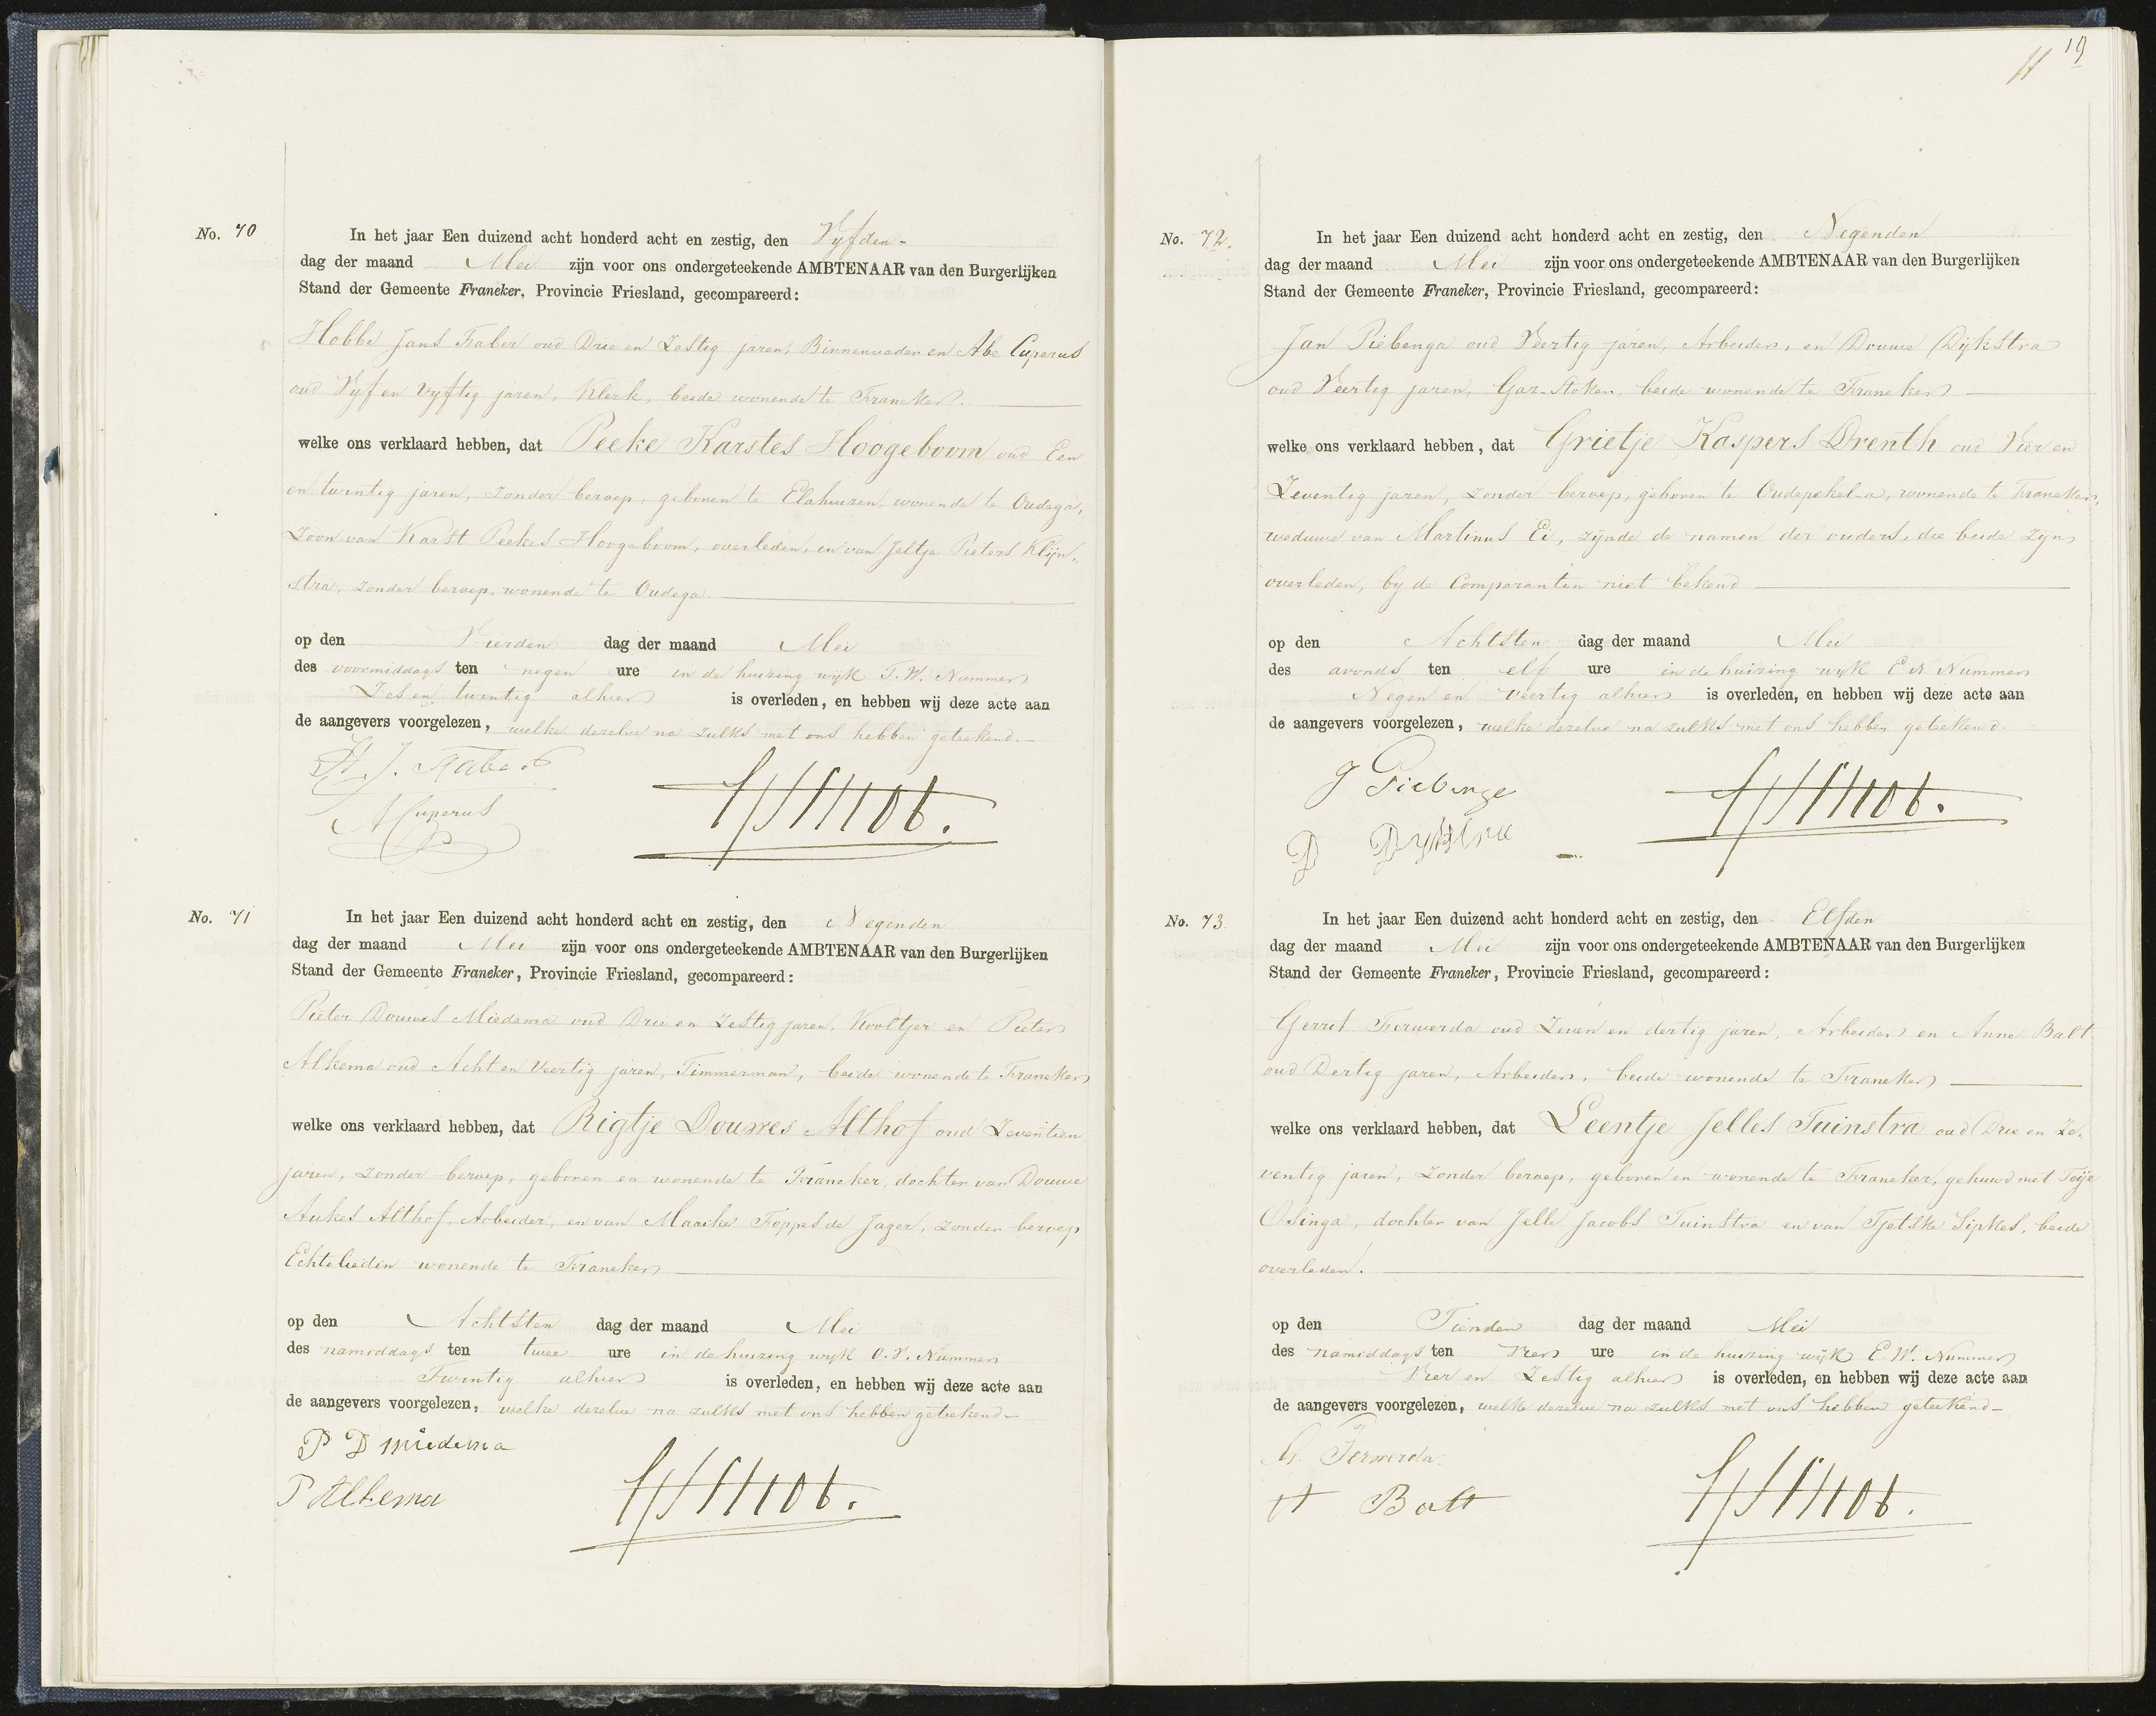 No. 70
In het jaar Een duizend acht honderd acht en zestig, den Vyfden -
dag der maand Mei zijn voor ons ondergeteekende AMBTENAAR van den Burgerlijken
Stand der Gemeente Franeker, Provincie Friesland, gecompareerd:
Hobbe Jans Faber oud Drie en Zestig jaren, Binnenvader en Abe Cuperus
oud Vyf en vyftig jaren, Klerk, beide wonende te Franeker.
welke ons verklaard hebben, dat Peeke Karstes Hoogeboom oud Een
en twintig jaren, zonder beroep, geboren te Elahuizen, wonende te Oudega,
Zoon van Karst Peekes Hoogeboom, overleden, en van Jeltje Pieters Klijn„
stra, zonder beroep, wonende te Oudega.
op den Vierden dag der maand Mei
des voormiddags ten negen ure in de huizing wijk T.W. Nummer
Zes en twintig alhier is overleden, en hebben wij deze acte aan
de aangevers voorgelezen, welke dezelve na zulks met ons hebben geteekend. -
H. J. Faber
A Cuperus
No. 71
In het jaar Een duizend acht honderd acht en zestig, den Negenden
dag der maand Mei zijn voor ons ondergeteekende AMBTENAAR van den Burgerlijken
Stand der Gemeente Franeker, Provincie Friesland, gecompareerd:
Pieter Douwes Miedema oud Drie en Zestig jaren, Kooltjer en Pieter
Alkema oud Acht en Veertig jaren, Timmerman, beide wonende te Franeker
welke ons verklaard hebben, dat Rigtje Douwes Althof oud Zeventien
jaren, zonder beroep, geboren en wonende te Franeker, dochter van Douwe
Aukes Althof, Arbeider, en van Maaike Foppes de Jager, zonder beroep
Echtelieden wonende te Franeker
op den Achtsten dag der maand Mei
des namiddags ten twee ure in de huizing wyk O.V. Nummer
Twintig alhier is overleden, en hebben wij deze acte aan
de aangevers voorgelezen, welke dezelve na zulks met ons hebben geteekend -
P D Miedema
P Alkema
19
No. 72.
In het jaar Een duizend acht honderd acht en zestig, den Negenden
dag der maand Mei zijn voor ons ondergeteekende AMBTENAAR van den Burgerlijken
Stand der Gemeente Franeker, Provincie Friesland, gecompareerd:
Jan Piebenga oud Veertig jaren, Arbeider, en Douwe Dijkstra
oud Veertig jaren, Gaz-Stoker, beide wonende te Franeker
welke ons verklaard hebben, dat Grietje Kaspers Drenth oud Vier en
Zeventig jaren, zonder beroep, geboren te Oudepekel-a, wonende te Franeker,
weduwe van Martinus Ei, zijnde de namen der ouders, die beide zyn
overleden, by de Comparanten niet bekend
op den Achtsten dag der maand Mei
des avonds ten elf ure in de huizing wyk E N Nummer
Negen en Veertig alhier is overleden, en hebben wij deze acte aan
de aangevers voorgelezen, welke dezelve na zulks met ons hebben geteekend.
J Piebinge
D Dykstra
No. 73.
In het jaar Een duizend acht honderd acht en zestig, den Elfden
dag der maand Mei zijn voor ons ondergeteekende AMBTENAAR van den Burgerlijken
Stand der Gemeente Franeker, Provincie Friesland, gecompareerd:
Gerrit Ferwerda oud Zeven en dertig jaren, Arbeider en Anne Balt
oud Dertig jaren, Arbeider, beide wonende te Franeker
welke ons verklaard hebben, dat Leentje Jelles Tuinstra oud Drie en Ze„
ventig jaren, zonder beroep, geboren en wonende te Franeker, gehuwd met Teije
Osinga, dochter van Jelle Jacobs Tuinstra en van Tjetske Sipkes, beide
overleden.
op den Tienden dag der maand Mei
des namiddags ten vier ure in de huizing wijk E.N. Nummer
Vier en Zestig alhier is overleden, en hebben wij deze acte aan
de aangevers voorgelezen, welke dezelve na zulks met ons hebben geteekend -
G. Ferwerda.
A Balt